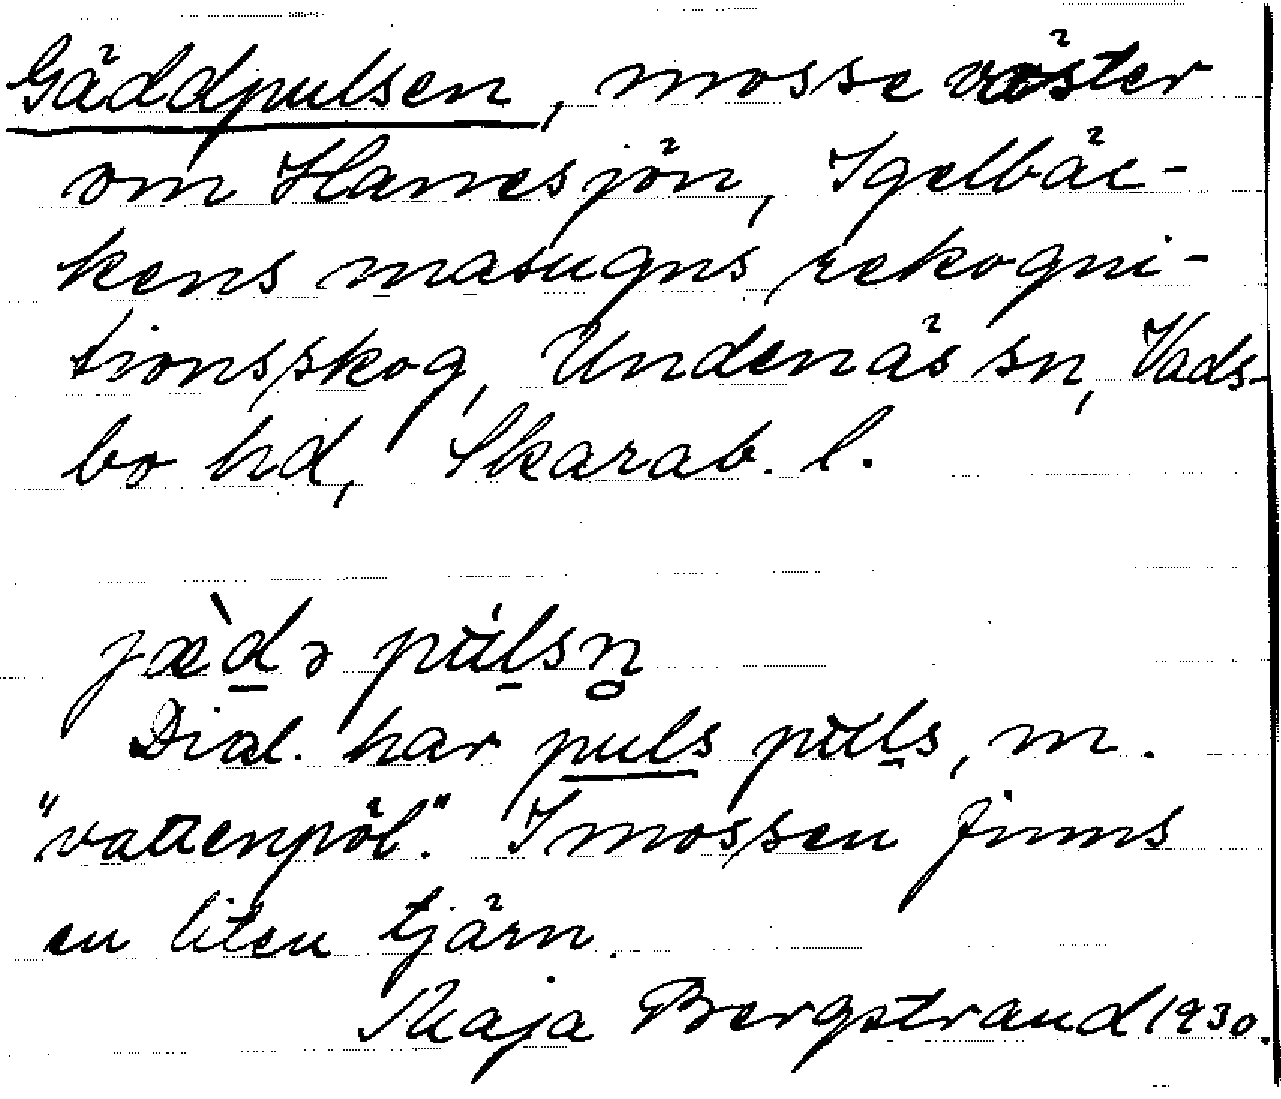 Gäddpulsen, mosse väster
om Hanesjön, Igelbäc-
kens masugns rekogni-
tionsskog, Undenäs sn, Vads-
bo hd, Skarab. l.
jæ̀də pu̇́lsn̥
Dial. har puls pu̇ls, m.
"vattenpöl". I mossen finns
en liten tjärn.
Maja Bergstrand 1930.